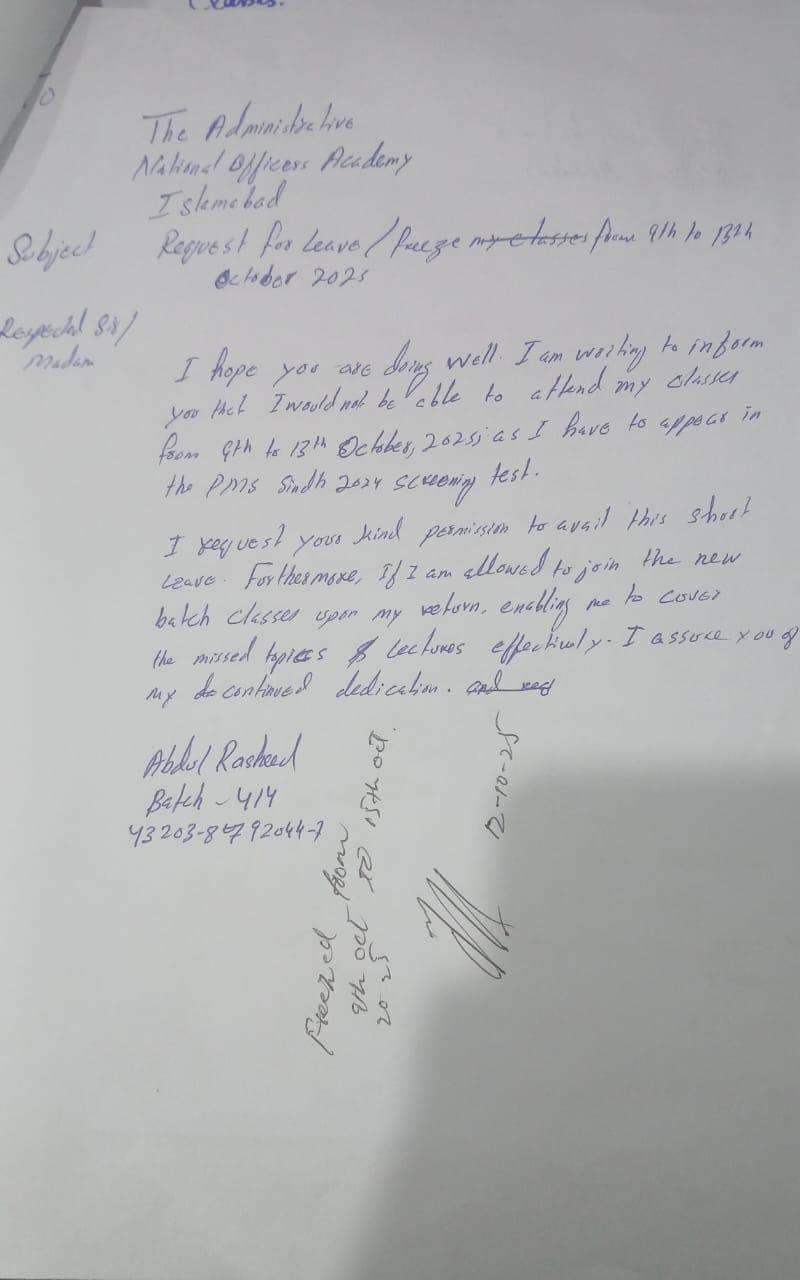 Classes.
To
The Administrative
National Officers Academy
Islamabad
Subject Request for Leave / freeze my classes from 9th to 13th
October 2025
Respected Sir/
Madam
I hope you are doing well. I am writing to inform
you that I would not be able to attend my classes
from 9th to 13th October, 2025; as I have to appear in
the PMS Sindh 2024 screening test.
I request your kind permission to avail this short
leave. Furthermore, If I am allowed to join the new
batch classes upon my return, enabling me to cover
the missed topics & Lectures effectively. I assure you of
my continued dedication. and
Abdul Rasheed
Batch - 414
43203-8792044-7
Freezed from
9th oct to 15th oct.
2025
12-10-25